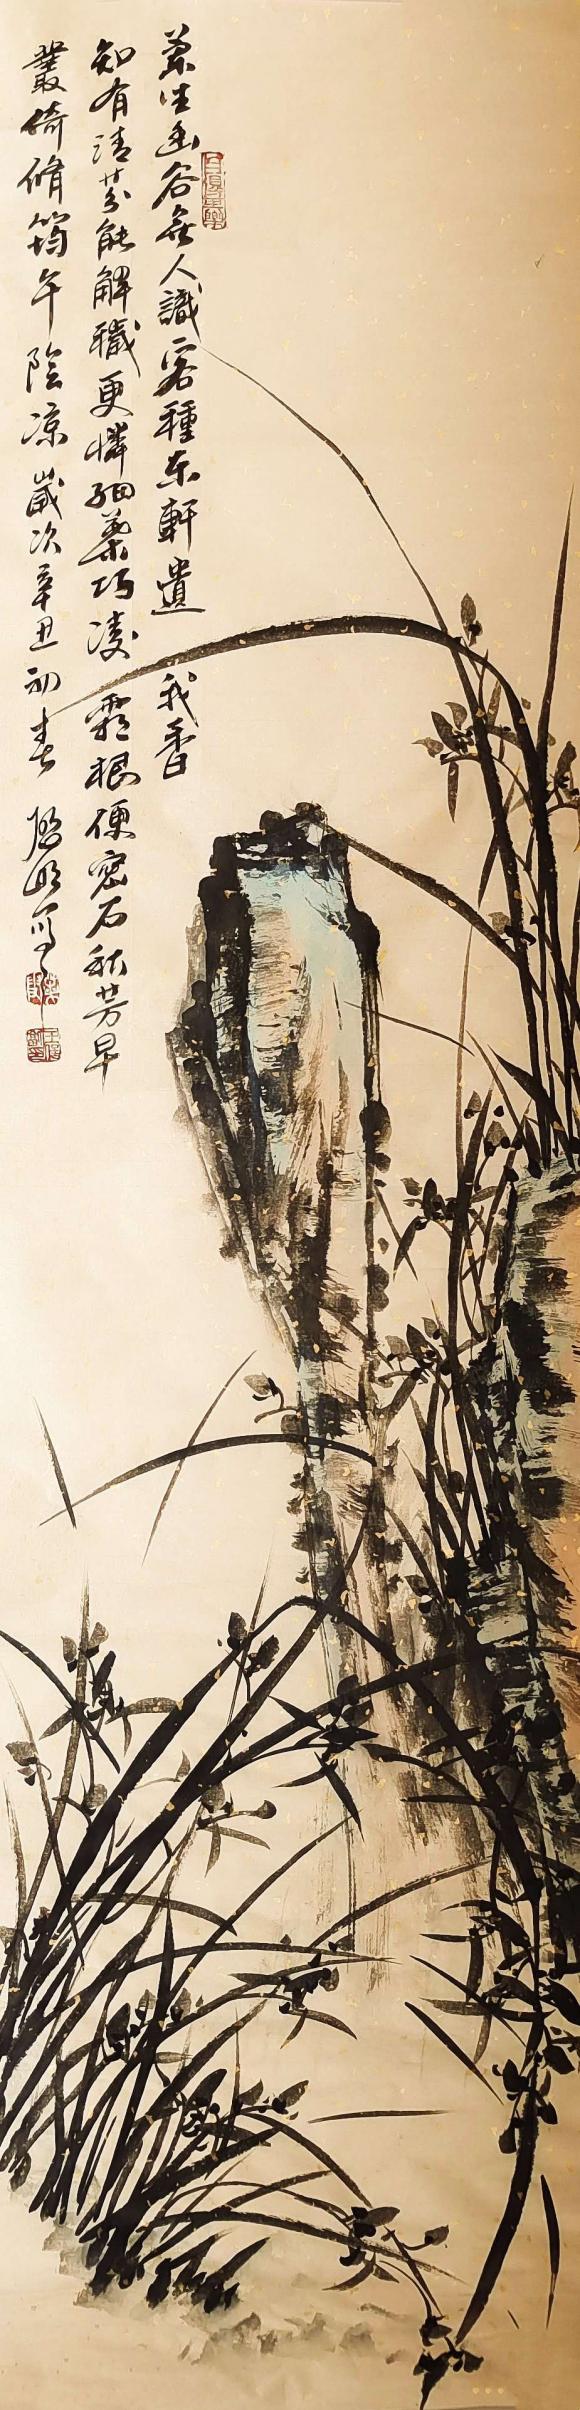 蘭生幽谷無人識客種東軒遺我香
知有清芬能解穢更憐細葉巧凌霜根便密石秋芳早
叢倚脩筠午陰凉歲次辛丑初春